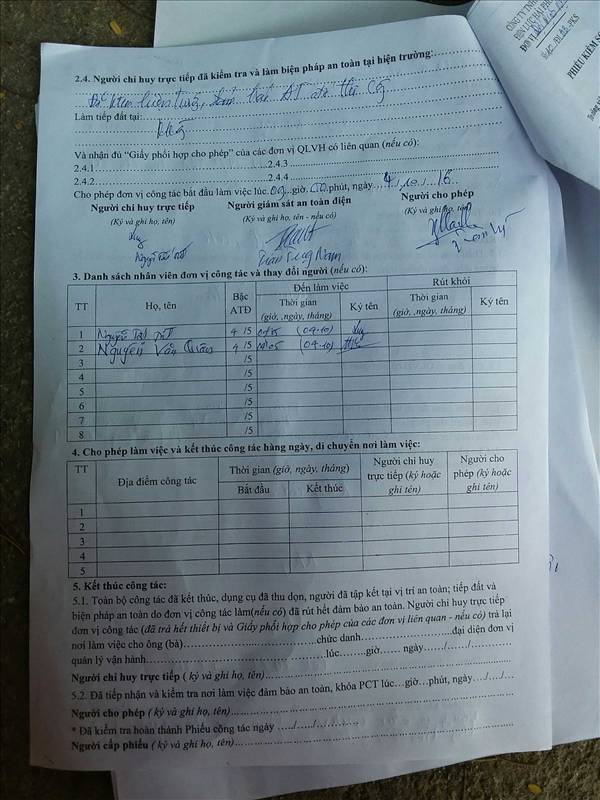 CÔNG TY TNHH
ĐIỆN LỰC HẢI PH
ĐƠN VỊ
PHIẾU KIỂM SO
2.4. Người chỉ huy trực tiếp đã kiểm tra và làm biện pháp an toàn tại hiện trường:
Làm tiếp đất tại:
Và nhận đủ "Giấy phối hợp cho phép" của các đơn vị QLVH có liên quan (nếu có):
2.4.1 2.4.3
2.4.2 2.4.4
Cho phép đơn vị công tác bắt đầu làm việc lúc giờ phút, ngày 4 / 10 / 18
Người chỉ huy trực tiếp Người giám sát an toàn điện Người cho phép
(Ký và ghi họ, tên) (Ký và ghi họ, tên - nếu có) (Ký và ghi họ, tên)
3. Danh sách nhân viên đơn vị công tác và thay đổi người (nếu có):
TT Họ, tên Bậc ATĐ Đến làm việc Rút khỏi
Thời gian (giờ, ngày, tháng) Ký tên Thời gian (giờ, ngày, tháng) Ký tên
1 Nguyễn 4 /5 (04-10)
2 Nguyễn Văn 4 /5 (04-10)
3 /5
4 /5
5 /5
6 /5
7 /5
8 /5
4. Cho phép làm việc và kết thúc công tác hàng ngày, di chuyển nơi làm việc:
TT Địa điểm công tác Thời gian (giờ, ngày, tháng) Người chỉ huy trực tiếp (ký hoặc ghi tên) Người cho phép (ký hoặc ghi tên)
Bắt đầu Kết thúc
1
2
3
4
5
5. Kết thúc công tác:
5.1. Toàn bộ công tác đã kết thúc, dụng cụ đã thu dọn, người đã tập kết tại vị trí an toàn; tiếp đất và
biện pháp an toàn do đơn vị công tác làm(nếu có) đã rút hết đảm bảo an toàn. Người chỉ huy trực tiếp
đơn vị công tác (đã trả hết thiết bị và Giấy phối hợp cho phép của các đơn vị liên quan - nếu có) trả lại
nơi làm việc cho ông (bà) chức danh đại diện đơn vị
quản lý vận hành lúc giờ ngày / /
Người chỉ huy trực tiếp ( ký và ghi họ, tên)
5.2. Đã tiếp nhận và kiểm tra nơi làm việc đảm bảo an toàn, khóa PCT lúc...giờ...phút, ngày..../..../....
Người cho phép ( ký và ghi họ, tên)
* Đã kiểm tra hoàn thành Phiếu công tác ngày ...../...../
Người cấp phiếu ( ký và ghi họ, tên)